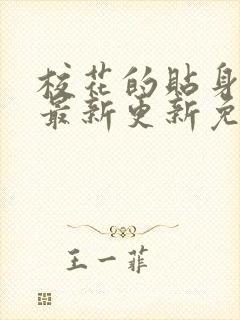 校花的贴身
最新更新免
王一菲